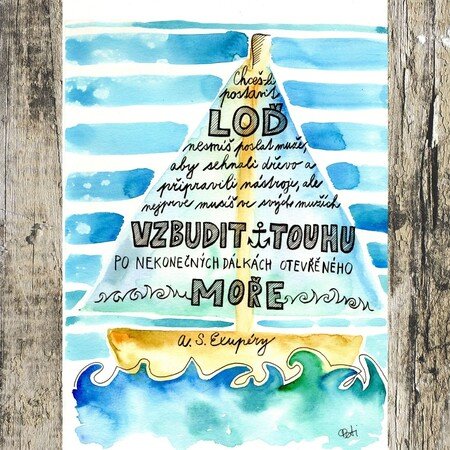 Chceš-li
postavit
LOĎ
nesmíš poslat muže,
aby sehnali dřevo a
připravili nástroje, ale
nejprve musíš ve svých mužích
VZBUDIT TOUHU
PO NEKONEČNÝCH DÁLKÁCH OTEVŘENÉHO
MOŘE
A. S. Exupéry